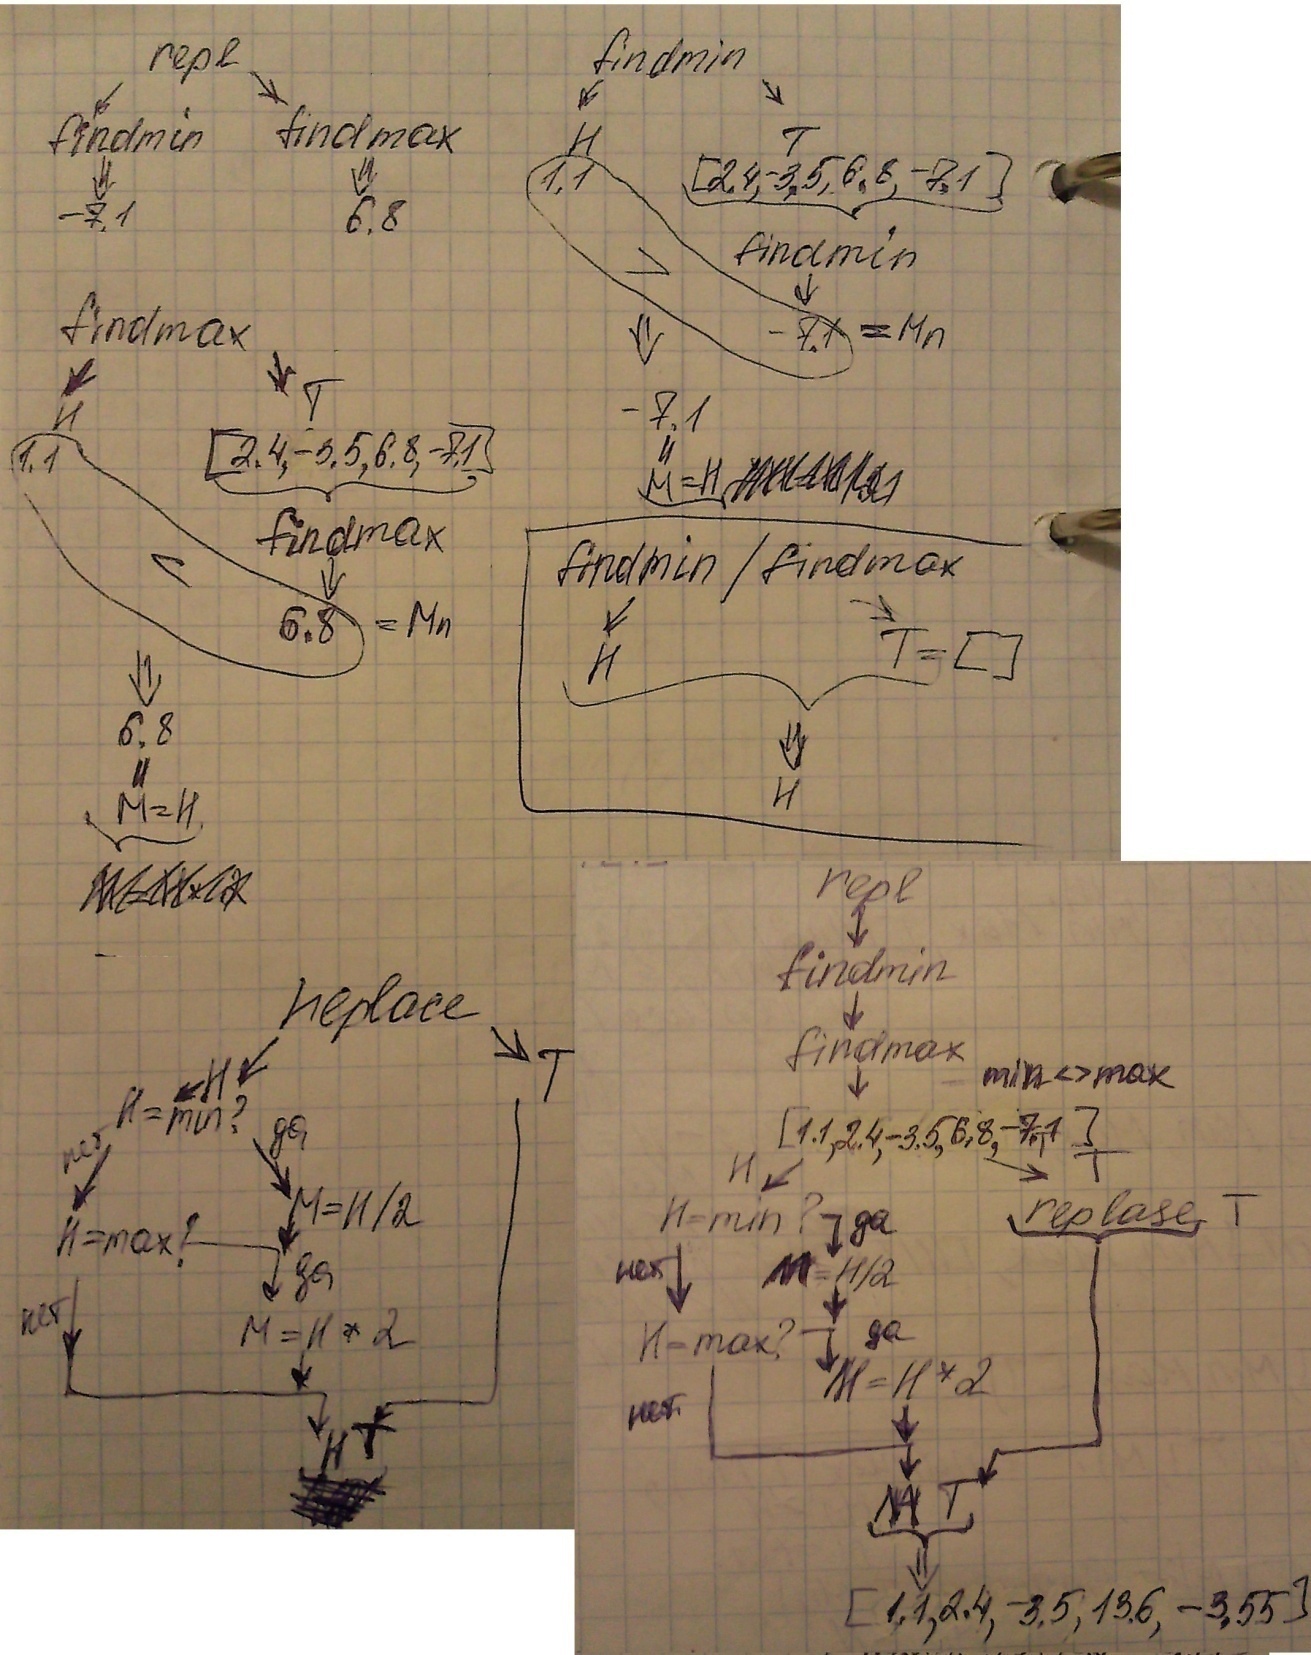 repl
findmin findmax
-7.1 6.8
findmin
H T
1.1 [2.4,-3.5,6.8,-7.1]
findmin
>
-7.1 = Mn
-7.1
=
M=H
findmax
H T
1.1 [2.4,-3.5,6.8,-7.1]
findmax
<
6.8 = Mn
6.8
=
M=H
findmin / findmax
H T=[]
H
replace
H T
H=min?
нет да
M=H/2
H=max?
да
нет
M=H*2
H T
repl
findmin
findmax
min<>max
[1.1,2.4,-3.5,6.8,-7.1]
H T
H=min? да replase T
нет M=H/2
H=max? да
M=H*2
нет
M T
[1.1,2.4,-3.5,13.6,-3.55]